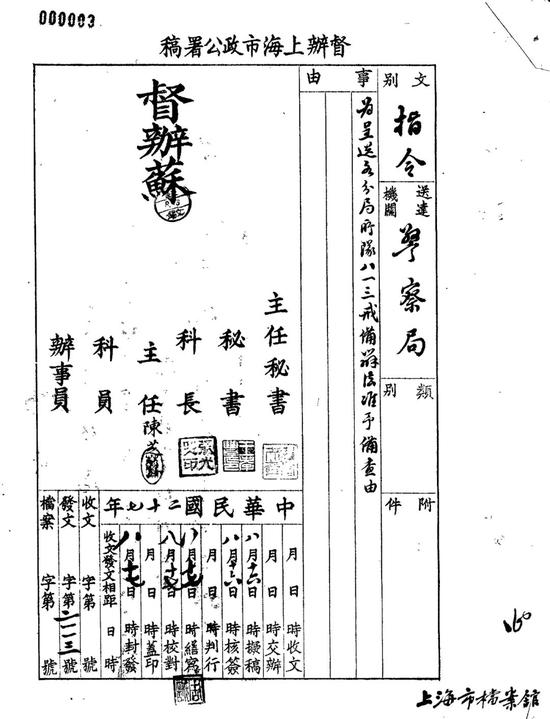 000003
督辦上海市政公署稿
文別
指令
送達機關
警察局
類別
附件
事由
為呈送各分局所隊八一三戒備辦法准予備查由
督辦蘇
主任秘書
秘書
科長
主任 陳
科員
辦事員
中華民國二十七年
月 日 時收文
月 日 時交辦
八月十六日 時擬稿
八月十六日 時核簽
月 日 時判行
八月十七日 時繕寫
八月十七日 時校對
月 日 時蓋印
八月十七日 時封發
收文發文相距 日 時
收文 字第 號
發文 字第二一一三號
檔案 字第 號
上海市檔案館